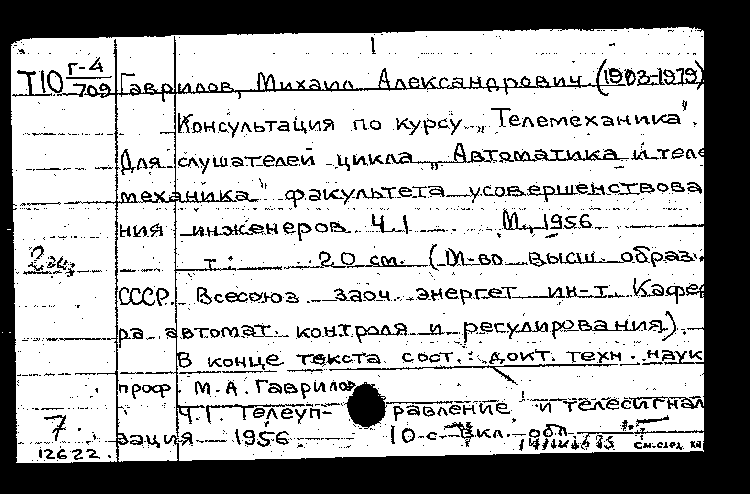 1
Т10 Г-4/709 Гаврилов, Михаил Александрович (1903-1979)
Консультация по курсу „Телемеханика".
Для слушателей цикла „Автоматика и теле
механика" факультета усовершенствова
ния инженеров Ч.1 М., 1956
т: 20 см. (М-во высш. образ.
2 экз
СССР. Всесоюз заоч. энергет ин-т. Кафед
ра автомат. контроля и регулирования)
В конце текста сост.: докт. техн. наук
проф. М.А. Гаврилов
Ч.1. Телеуп- равление и телесигнал
7.
зация 1956 10 с. вкл. обл.
12622. см. след. ка